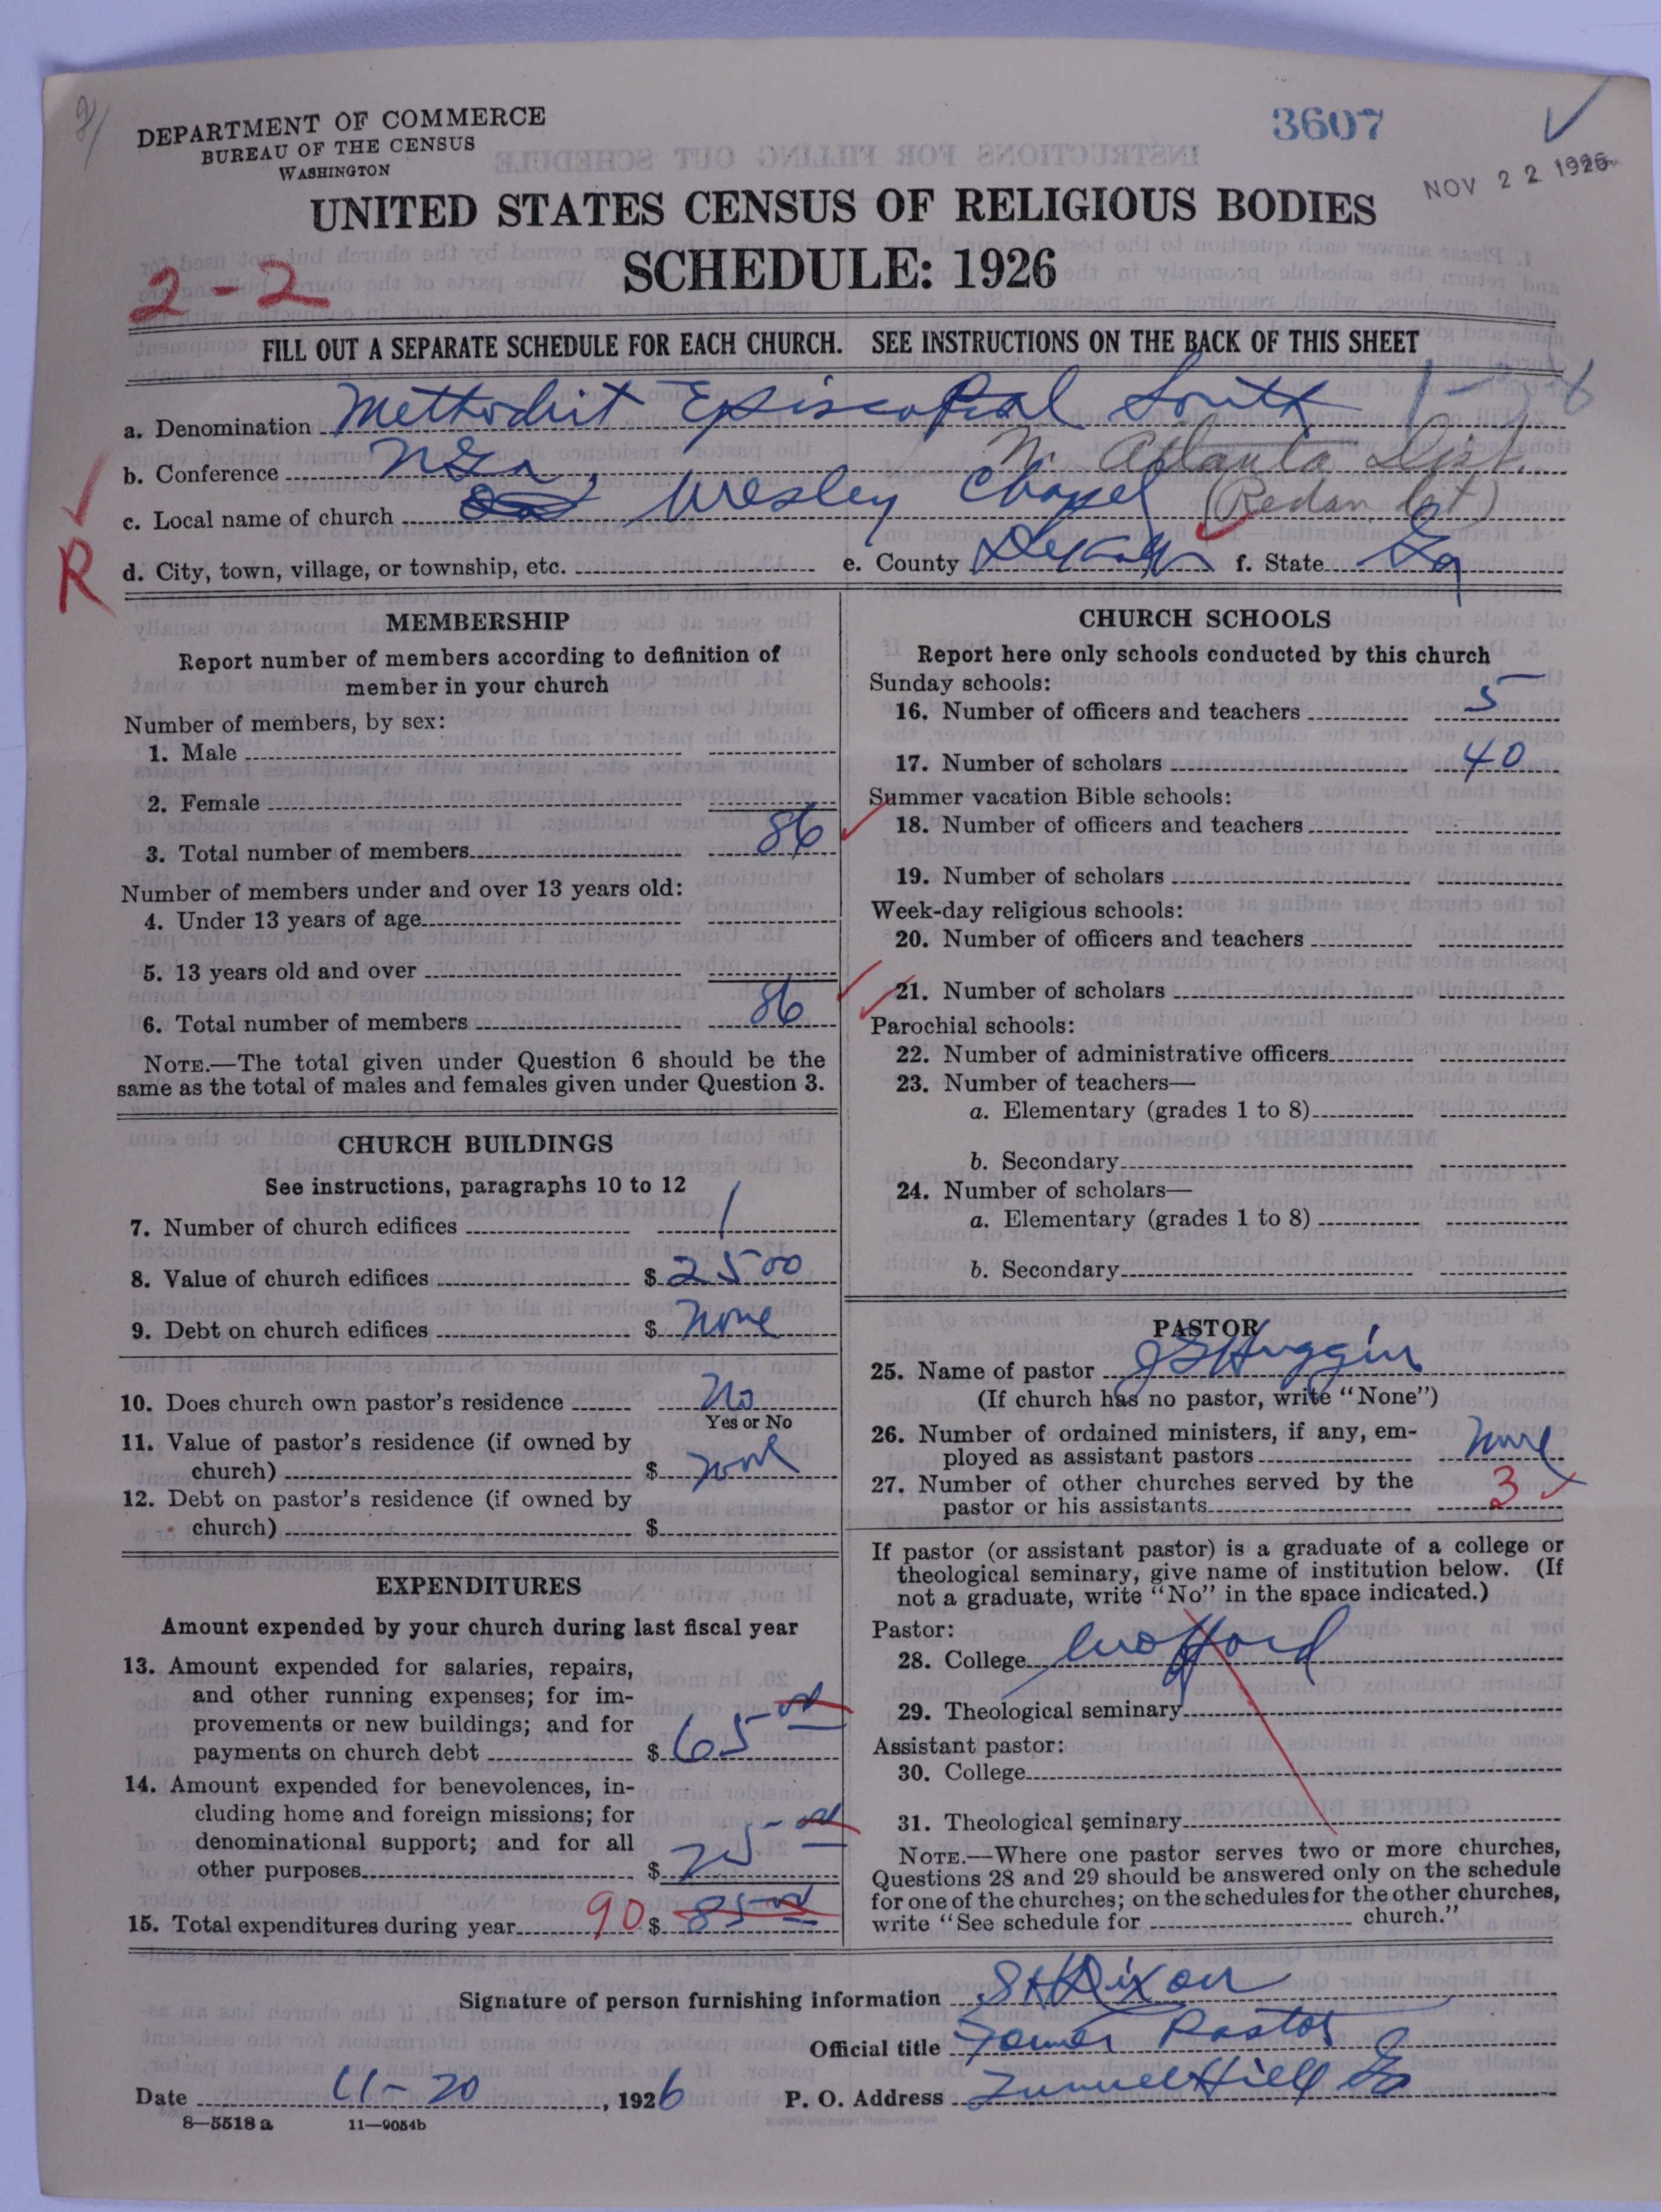 DEPARTMENT OF COMMERCE
BUREAU OF THE CENSUS
WASHINGTON
3607
NOV 22 1926
UNITED STATES CENSUS OF RELIGIOUS BODIES
SCHEDULE: 1926
2-2
FILL OUT A SEPARATE SCHEDULE FOR EACH CHURCH. SEE INSTRUCTIONS ON THE BACK OF THIS SHEET
a. Denomination Methodist Episcopal South
b. Conference N Ga, N. Atlanta Dist.
c. Local name of church Wesley Chapel (Redan
R
d. City, town, village, or township, etc. e. County DeKalb f. State Ga
MEMBERSHIP
Report number of members according to definition of
member in your church
Number of members, by sex:
1. Male
2. Female
3. Total number of members 86
Number of members under and over 13 years old:
4. Under 13 years of age
5. 13 years old and over
6. Total number of members 86
NOTE.—The total given under Question 6 should be the
same as the total of males and females given under Question 3.
CHURCH BUILDINGS
See instructions, paragraphs 10 to 12
7. Number of church edifices 1
8. Value of church edifices $ 2500
9. Debt on church edifices $ None
10. Does church own pastor's residence No
Yes or No
11. Value of pastor's residence (if owned by
church) $ None
12. Debt on pastor's residence (if owned by
church) $
EXPENDITURES
Amount expended by your church during last fiscal year
13. Amount expended for salaries, repairs,
and other running expenses; for im-
provements or new buildings; and for
payments on church debt $ 65 00
14. Amount expended for benevolences, in-
cluding home and foreign missions; for
denominational support; and for all
other purposes $ 25 00
15. Total expenditures during year 90 $ 85 00
CHURCH SCHOOLS
Report here only schools conducted by this church
Sunday schools:
16. Number of officers and teachers 5
17. Number of scholars 40
Summer vacation Bible schools:
18. Number of officers and teachers
19. Number of scholars
Week-day religious schools:
20. Number of officers and teachers
21. Number of scholars
Parochial schools:
22. Number of administrative officers
23. Number of teachers—
a. Elementary (grades 1 to 8)
b. Secondary
24. Number of scholars—
a. Elementary (grades 1 to 8)
b. Secondary
PASTOR
25. Name of pastor J S Huggin
(If church has no pastor, write "None")
26. Number of ordained ministers, if any, em-
ployed as assistant pastors None
27. Number of other churches served by the
pastor or his assistants 3
If pastor (or assistant pastor) is a graduate of a college or
theological seminary, give name of institution below. (If
not a graduate, write "No" in the space indicated.)
Pastor:
28. College Wofford
29. Theological seminary
Assistant pastor:
30. College
31. Theological seminary
NOTE.—Where one pastor serves two or more churches,
Questions 28 and 29 should be answered only on the schedule
for one of the churches; on the schedules for the other churches,
write "See schedule for church."
Signature of person furnishing information S H Dixon
Official title Former Pastor
Date 11-20, 1926 P. O. Address Tunnel Hill Ga
8—5518 a 11—9054b